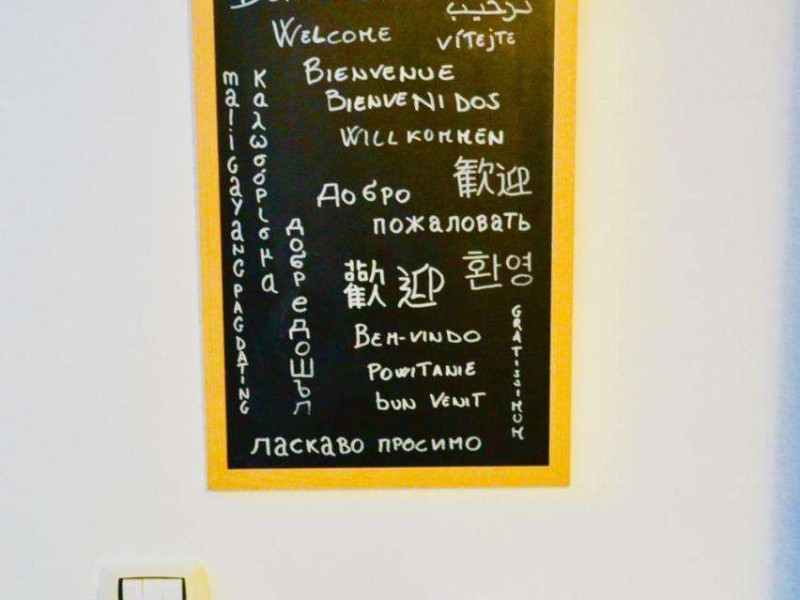 ترحيب
WELCOME
VÍTEJTE
BIENVENUE
BIENVENIDOS
WILLKOMMEN
歡迎
Добро
пожаловать
歡迎
환영
BEM-VINDO
POWITANIE
bUN VENIT
ласкаво просимо
maligayang pagdating
Καλωσόρισμα
добредошъл
GRATISSIMUM